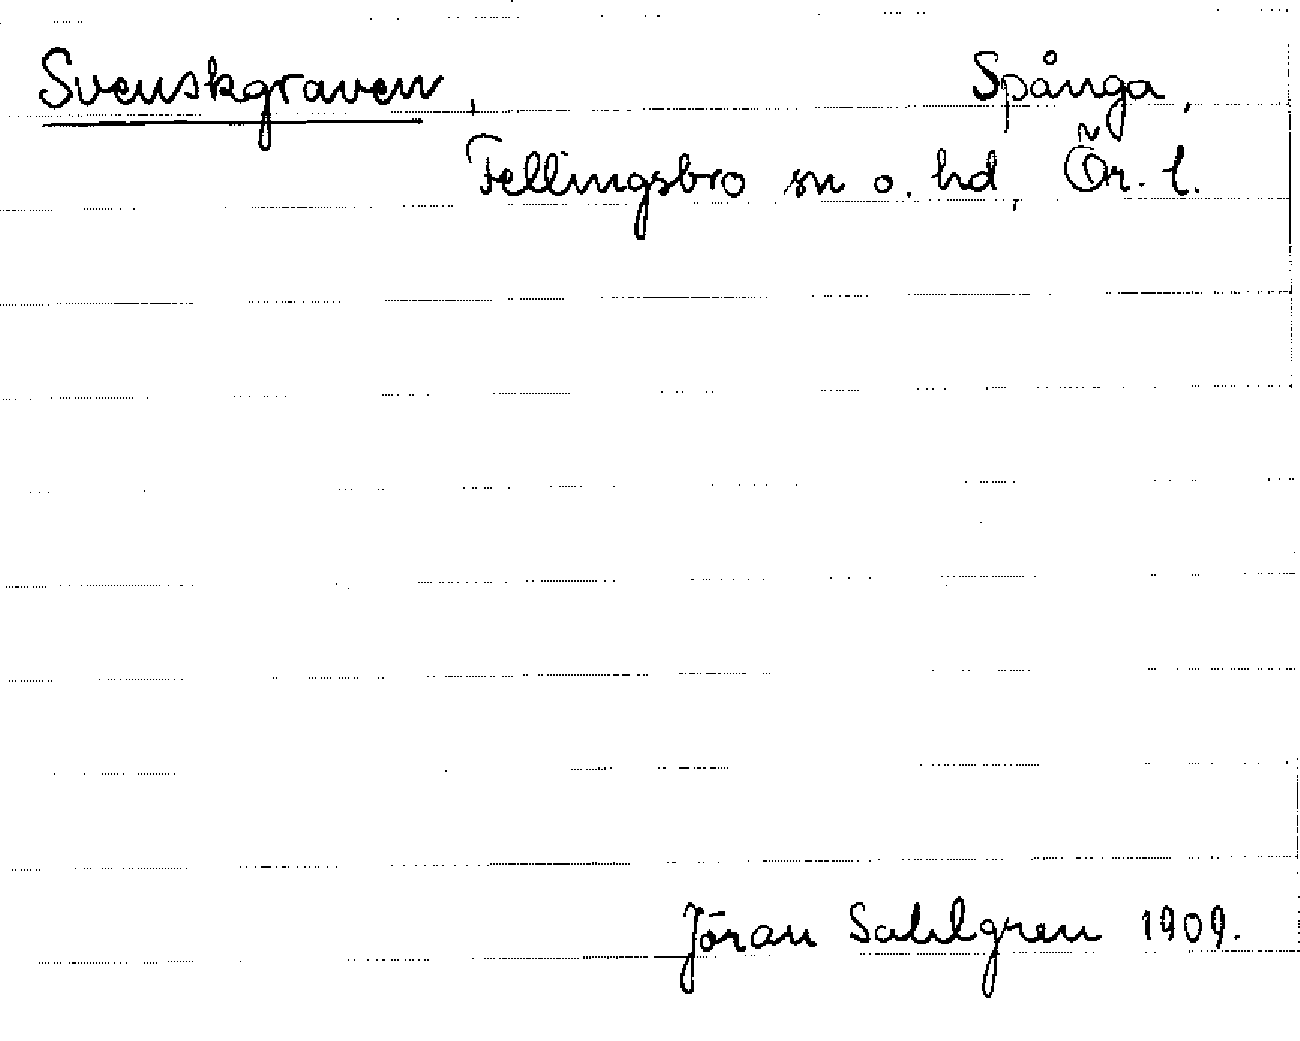 Svenskgraven, Spånga,
Fellingsbro sn o. hd, Ör. l.
Jöran Sahlgren 1909.